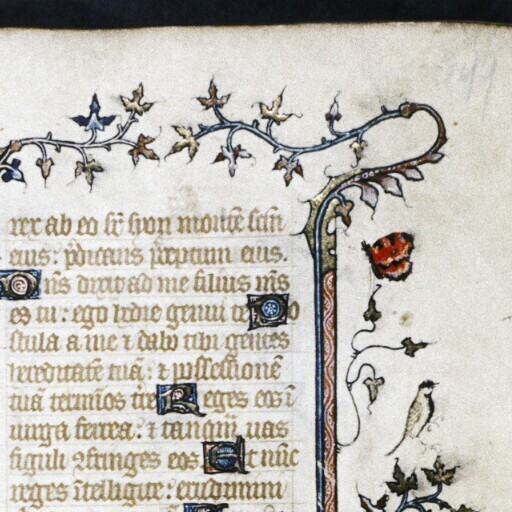 149
rex ab eo sr̄ syon montē scīn
eius: p̄dicans p̄ceptum eius.
Dn̄s dixit ad me filius mīs
es tu: ego hodie genui te Po
stula a me ⁊ dabo tibi gentes
hereditatē tuā: ⁊ possessionē
tuā termīos tr̄e Reges eos ī
uirga ferrea: ⁊ tanqm̄ uas
figuli ꝯfringes eos Et nūc
reges ītelligite: erudimini